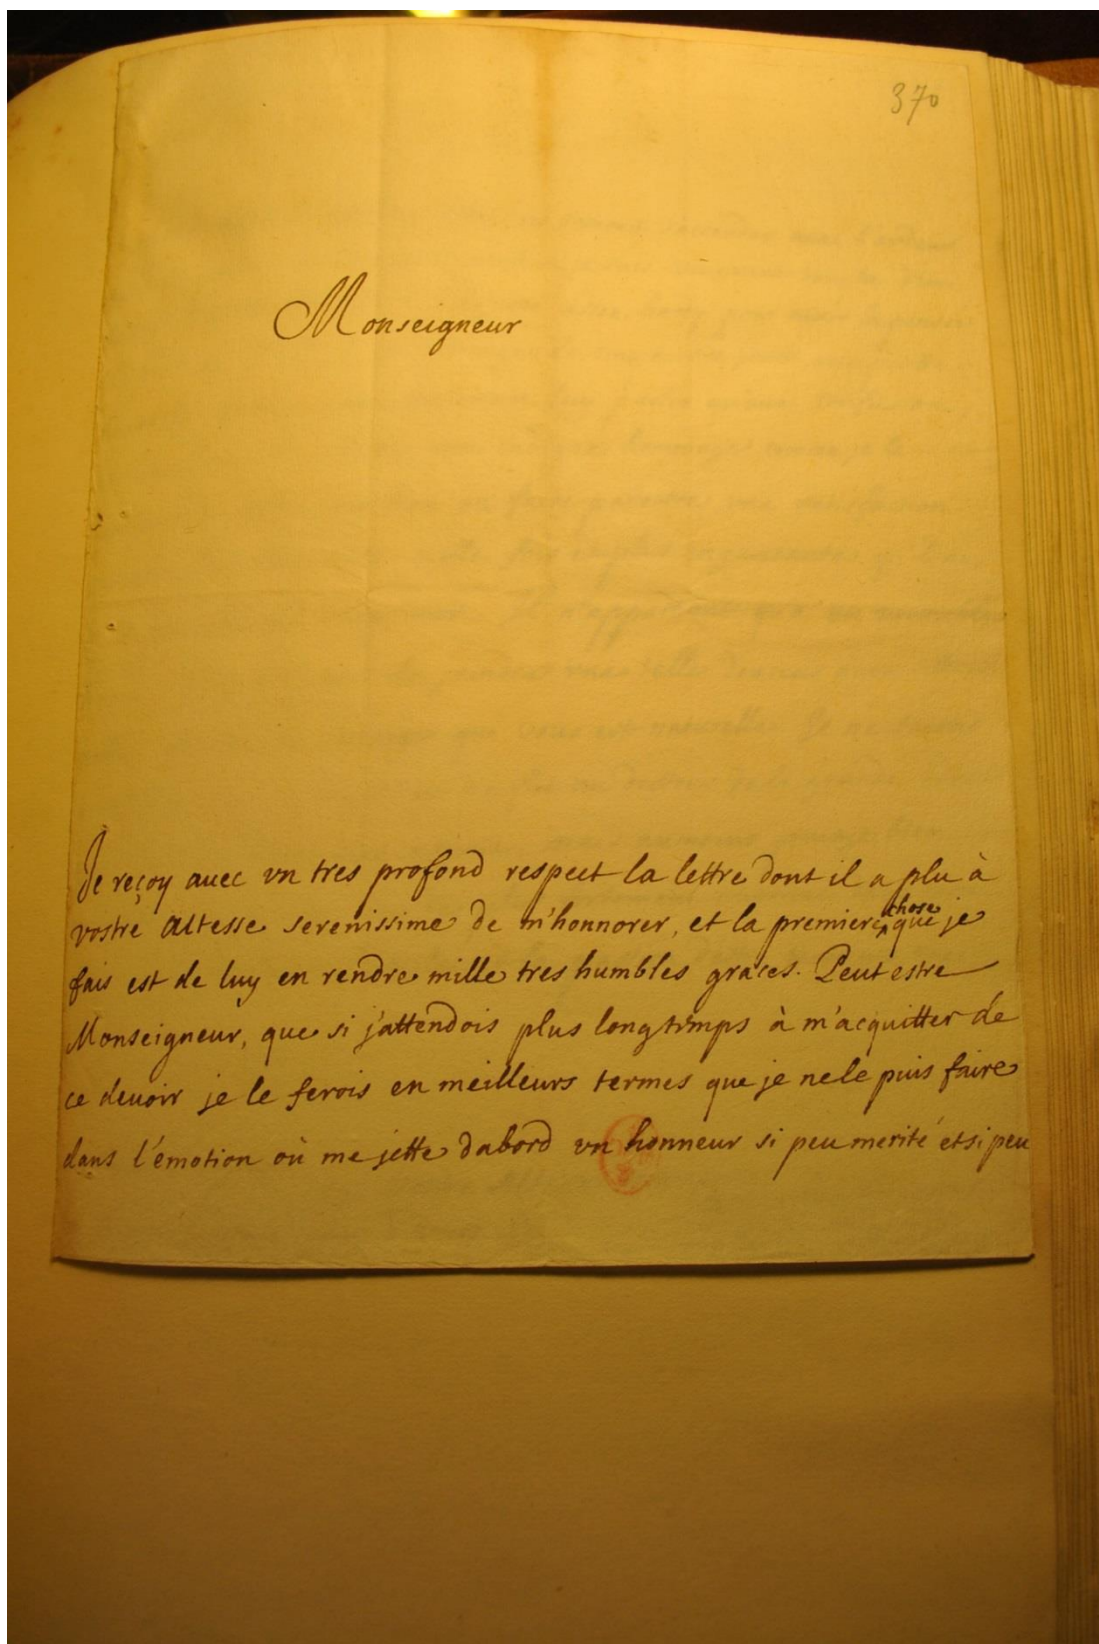 370
Monseigneur
Je reçoy auec vn tres profond respect la lettre dont il a plu à
vostre altesse serenissime de m'honnorer, et la premiere chose que je
fais est de luy en rendre mille tres humbles graces. Peut estre
Monseigneur, que si j'attendois plus longtemps à m'acquitter de
ce deuoir je le ferois en meilleurs termes que je ne le puis faire
dans l'émotion où me jette dabord vn honneur si peu merité et si peu